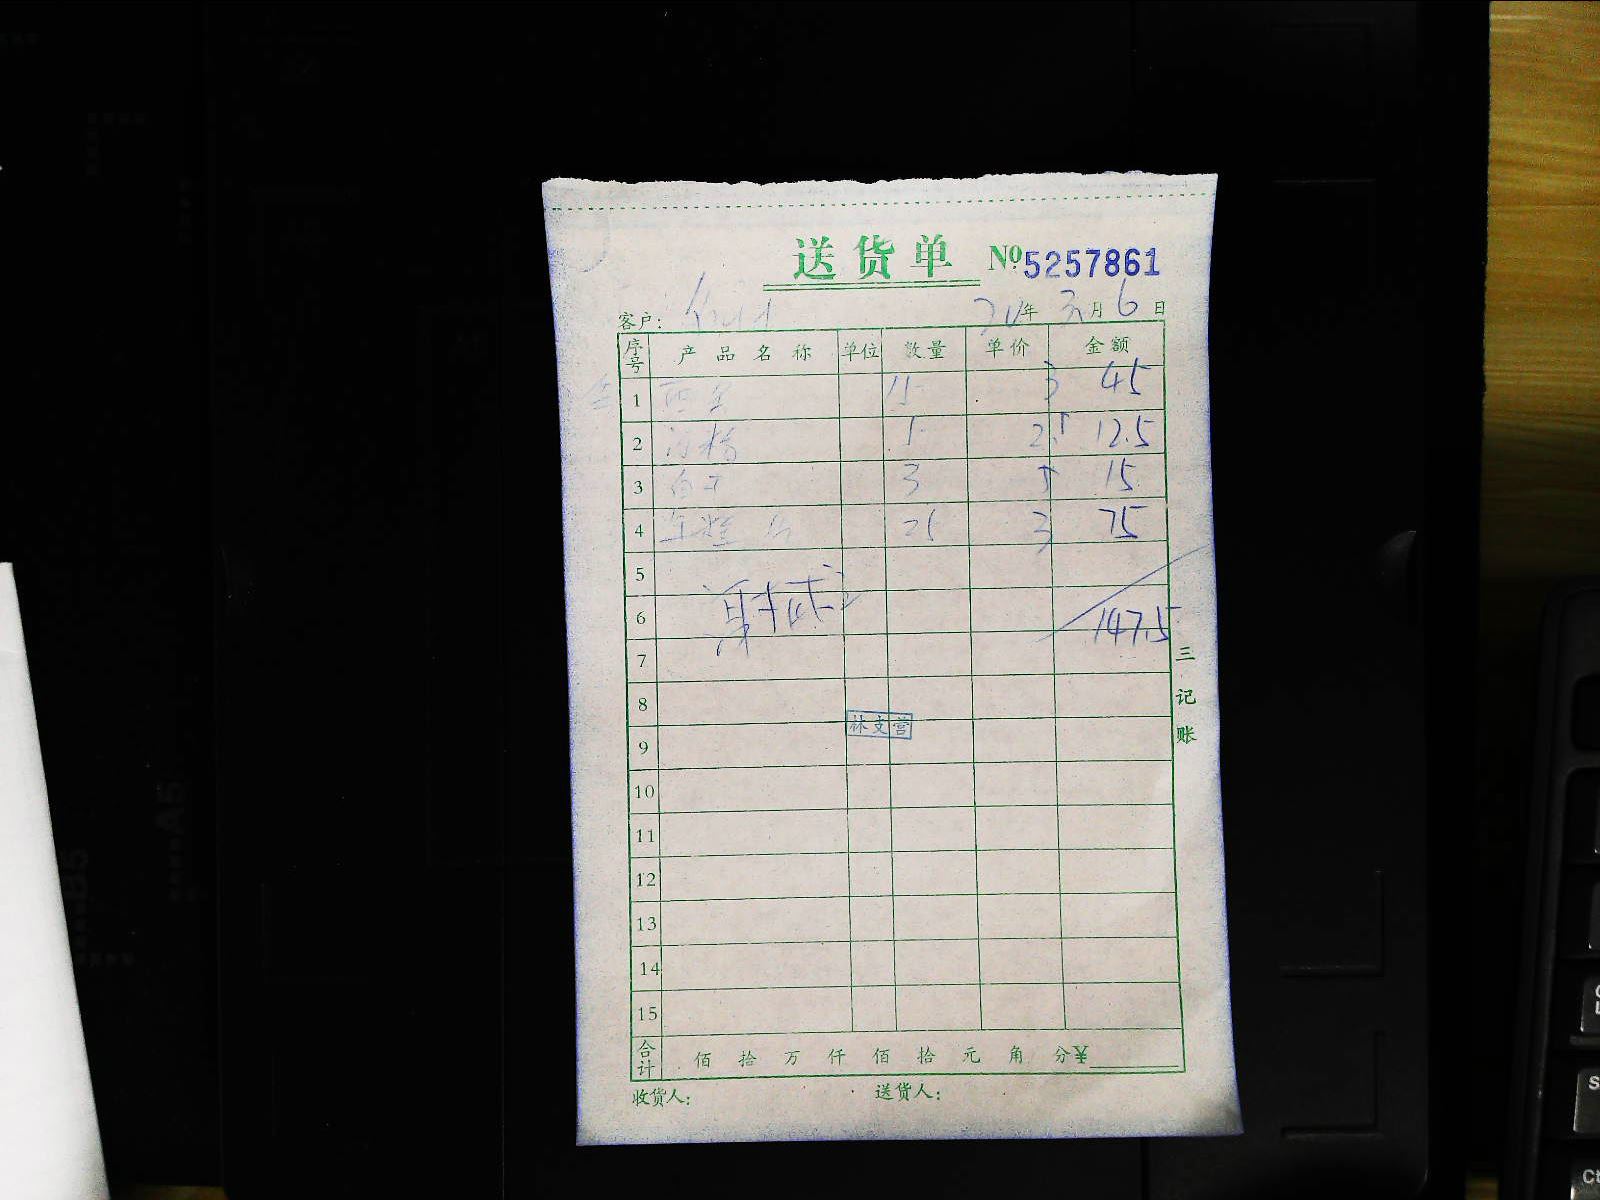 送货单 №5257861
客户: 年 3月 6日
序号 产品名称 单位 数量 单价 金额
1 15 3 45
2 1 12.5
3 3 5 15
4 25 3 75
5
6 147.5
7
8
林支营
9
10
11
12
13
14
15
合计 佰 拾 万 仟 佰 拾 元 角 分¥
收货人: 送货人:
三记账
B5
A5